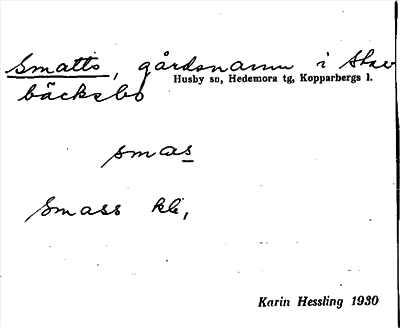 Smatts, gårdsnamn i Stav
bäcksbo
Husby sn, Hedemora tg, Kopparbergs l.
smas
Smass kli,
Karin Hessling 1930